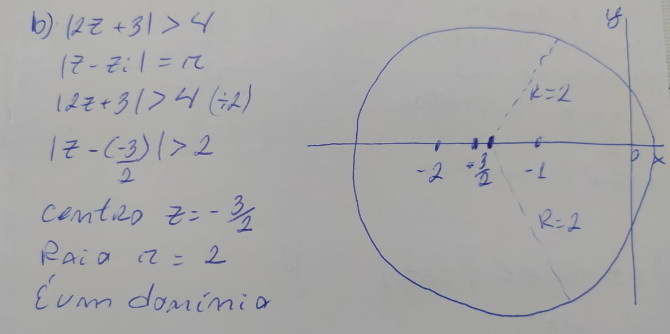 b) |2z + 3| > 4
|z - zi| = r
|2z + 3| > 4 (÷2)
|z - (-3/2)| > 2
centro z = - 3/2
Raio r = 2
É um domínio
y
R = 2
-2 -3/2 -1 0 x
R = 2